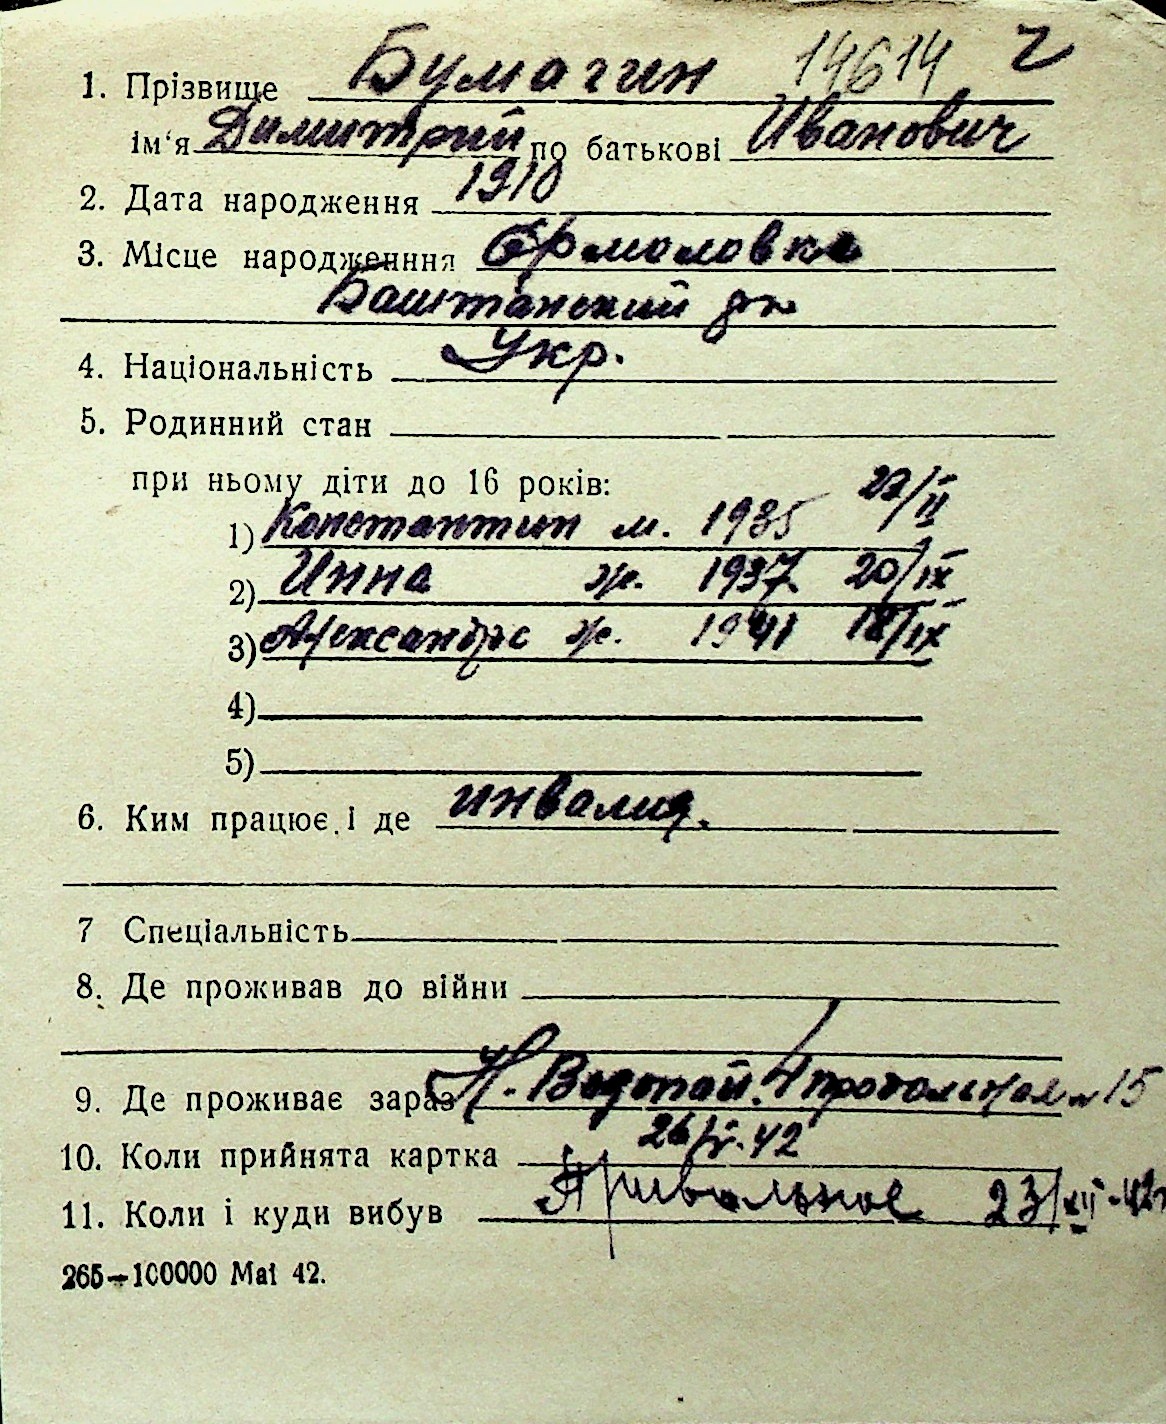 1. Прізвище Бумагин 14614 2
ім‘я Димитрий по батькові Иванович
2. Дата народження 1910
3. Місце народженння Ермоловка
Баштанский
4. Національність Укр.
5. Родинний стан
при ньому діти до 16 років:
1) Константин м. 1935 /II
2) Инна ж. 1937 20/IX
3) Александра ж. 1941 18/IX
4)
5)
6. Ким працює і де инвалид.
7 Спеціальність
8. Де проживав до війни
9. Де проживає зараз Н. Водопой. 4 продольная 15
10. Коли прийнята картка 26/V-42
11. Коли і куди вибув Привольное 23/XII-42г
265—100000 Mai 42.